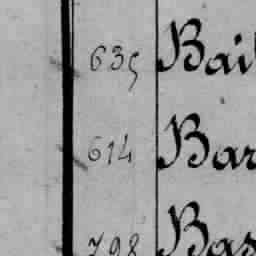 635 Bai
614 Bar
798 Bas